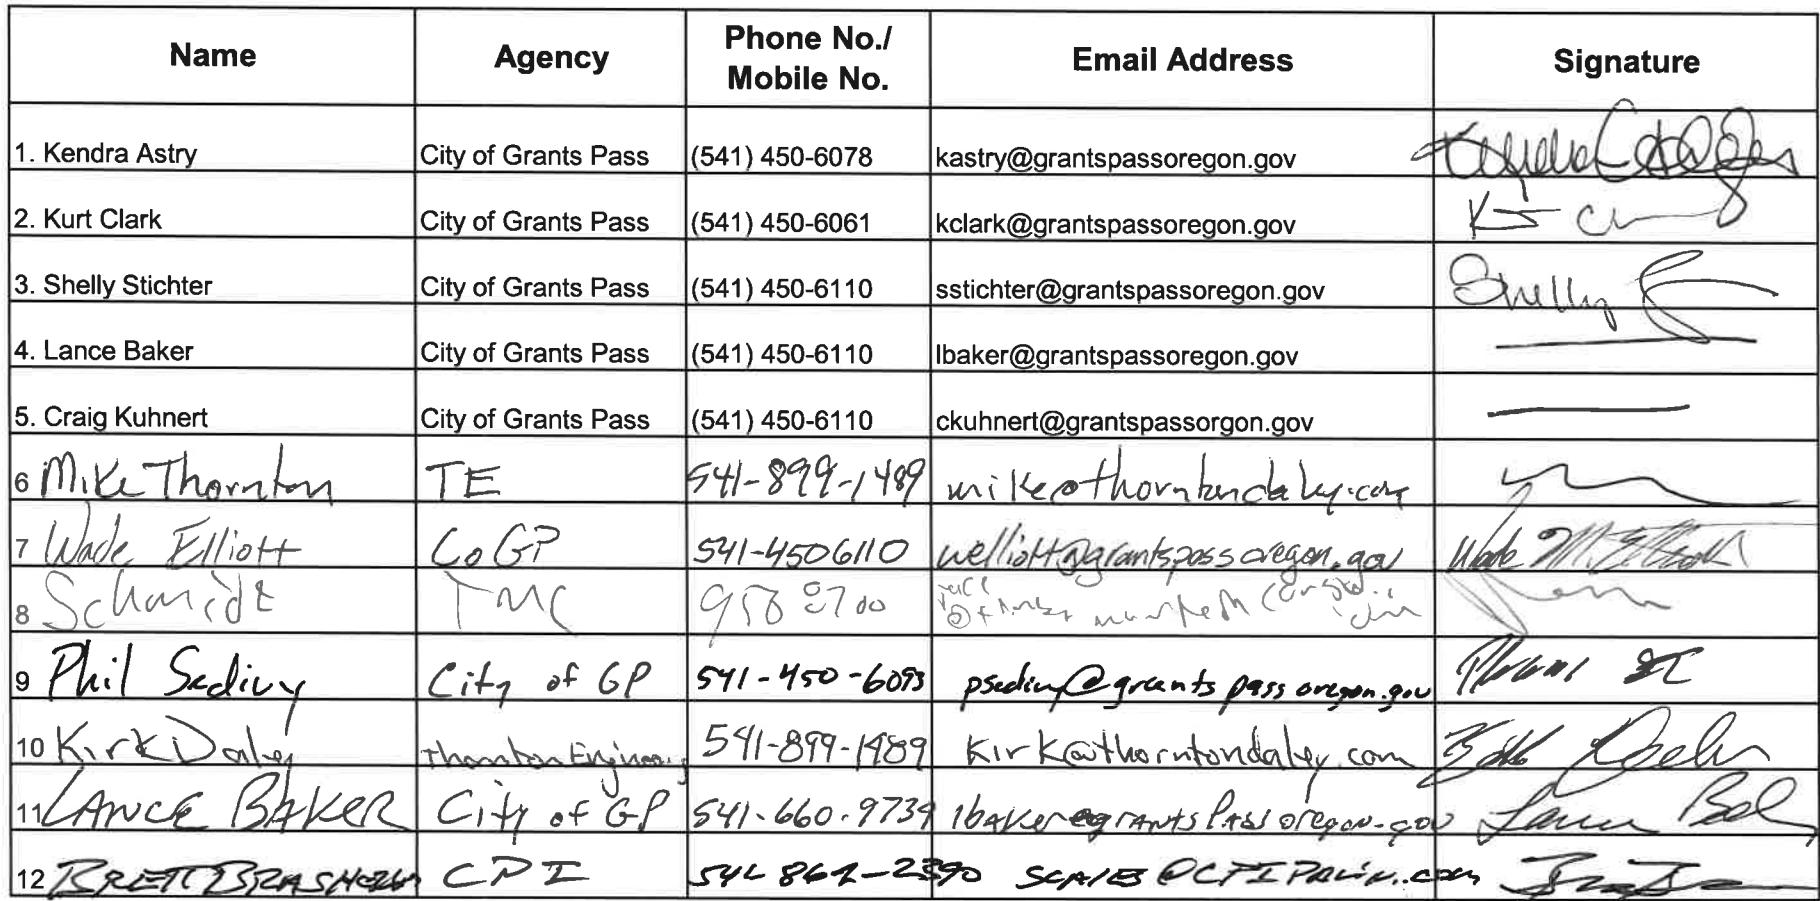 Name Agency Phone No./ Mobile No. Email Address Signature
1. Kendra Astry City of Grants Pass (541) 450-6078 kastry@grantspassoregon.gov
2. Kurt Clark City of Grants Pass (541) 450-6061 kclark@grantspassoregon.gov
3. Shelly Stichter City of Grants Pass (541) 450-6110 sstichter@grantspassoregon.gov Shelly
4. Lance Baker City of Grants Pass (541) 450-6110 lbaker@grantspassoregon.gov
5. Craig Kuhnert City of Grants Pass (541) 450-6110 ckuhnert@grantspassorgon.gov
6 Mike Thornton TE 541-899-1489 mike@thorntondaley.com
7 Wade Elliott CoGP 541-4506110 welliott@grantspassoregon.gov Wade
8 Schmidt
9 Phil Sedivy City of GP 541-450-6093 psedivy@grantspassoregon.gov
10 Kirk Daley Thornton Engineering 541-899-1489 Kirk@thorntondaley.com
11 LANCE BAKER City of GP 541-660-9739 lbaker@grantsPassoregon.gov
12 BRETT CPI